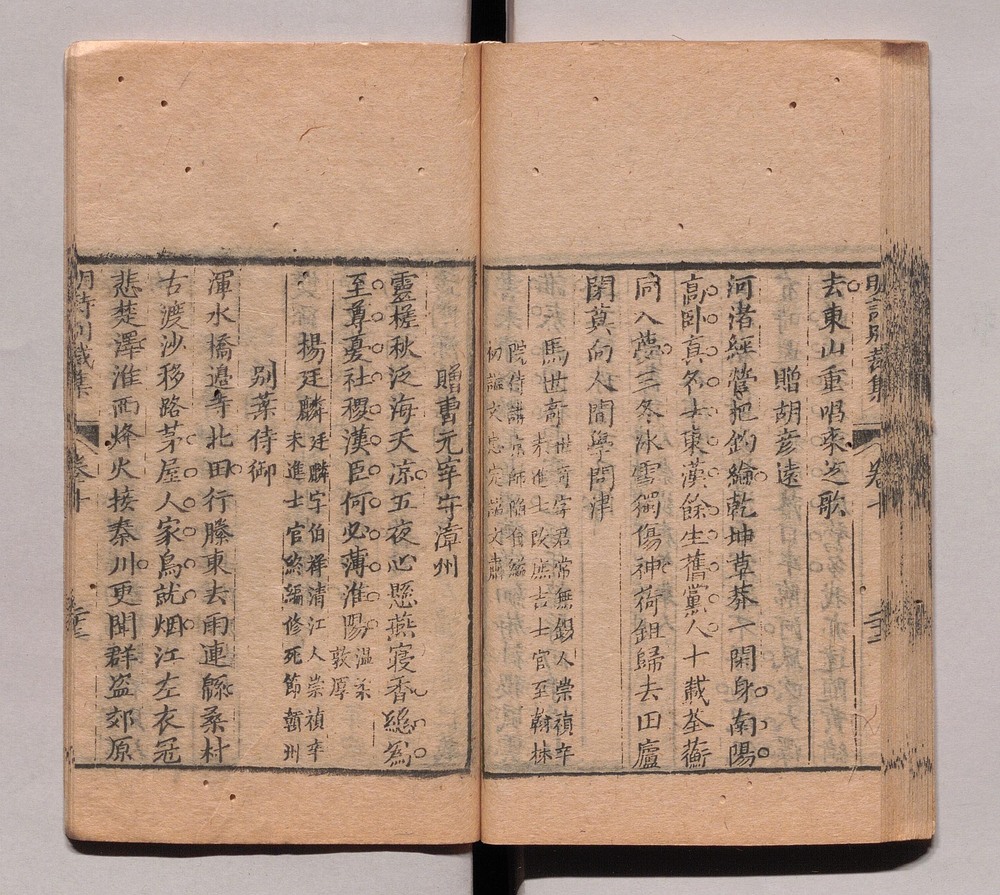 明詩別裁集 卷十 二十二
去東山重唱來遊歌
贈胡彥遠
河渚經營把釣綸乾坤草莽一閑身南陽
高臥真名士東漢餘生舊黨人十載荃蘅
同入夢三冬冰雪獨傷神荷鉏歸去田廬
閑莫向人間學問津
馬世奇 世奇字君常無錫人崇禎辛
未進士改庶吉士官至翰林
院侍講京師陷自縊
初謚文忠定謚文肅
贈曹元宰守漳州
靈槎秋泛海天凉五夜心懸燕寢香總為
至尊憂社稷漢臣何必薄淮陽 溫柔
敦厚
楊廷麟 廷麟字伯祥清江人崇禎辛
未進士官終編修死節贛州
別葉侍御
渾水橋邊寺北田行縢東去雨連緜桑村
古渡沙移路茅屋人家鳥就烟江左衣冠
悲楚澤淮西烽火接秦川更聞群盗郊原
明詩別裁集 卷十 二十三